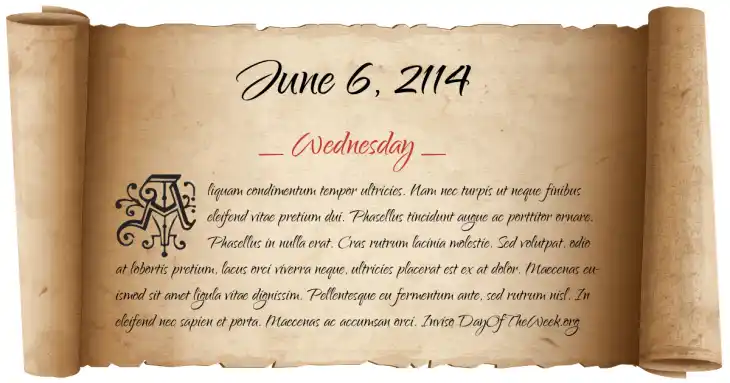 June 6, 2114
— Wednesday —
Aliquam condimentum tempor ultricies. Nam nec turpis ut neque finibus
eleifend vitae pretium dui. Phasellus tincidunt augue ac porttitor ornare.
Phasellus in nulla erat. Cras rutrum lacinia molestie. Sed volutpat, odio
at lobortis pretium, lacus orci viverra neque, ultricies placerat est ex at dolor. Maecenas eu-
ismod sit amet ligula vitae dignissim. Pellentesque eu fermentum ante, sed rutrum nisl. In
eleifend nec sapien et porta. Maecenas ac accumsan orci. Inviso DayOfTheWeek.org